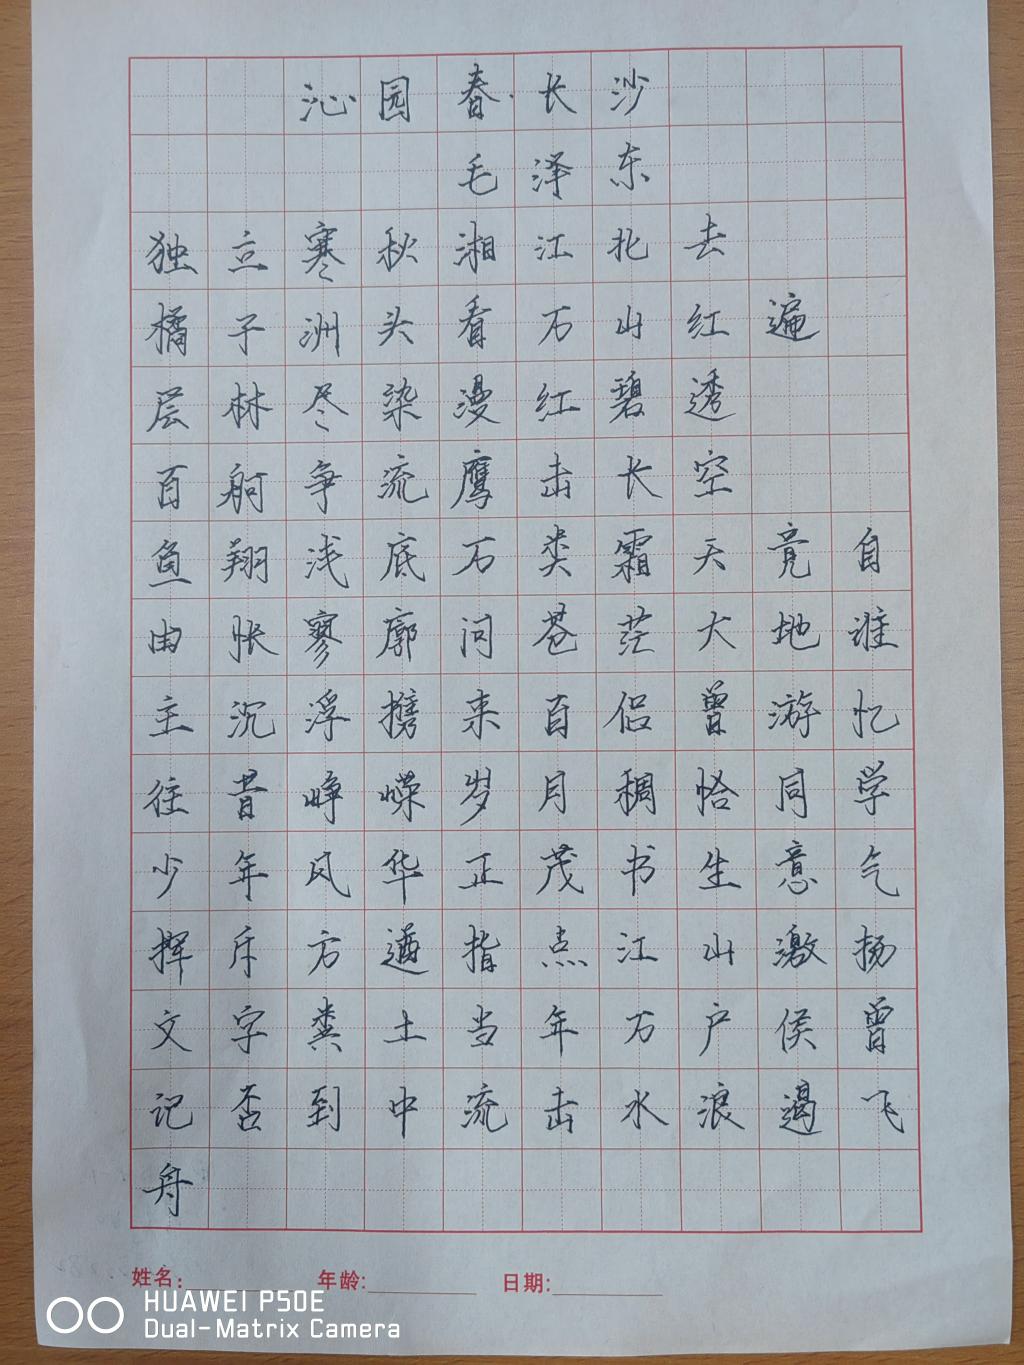 沁园春·长沙
毛泽东
独立寒秋湘江北去
橘子洲头看万山红遍
层林尽染漫红碧透
百舸争流鹰击长空
鱼翔浅底万类霜天竞自
由怅寥廓问苍茫大地谁
主沉浮携来百侣曾游忆
往昔峥嵘岁月稠恰同学
少年风华正茂书生意气
挥斥方遒指点江山激扬
文字粪土当年万户侯曾
记否到中流击水浪遏飞
舟
姓名: 年龄: 日期:
HUAWEI P50E
Dual-Matrix Camera